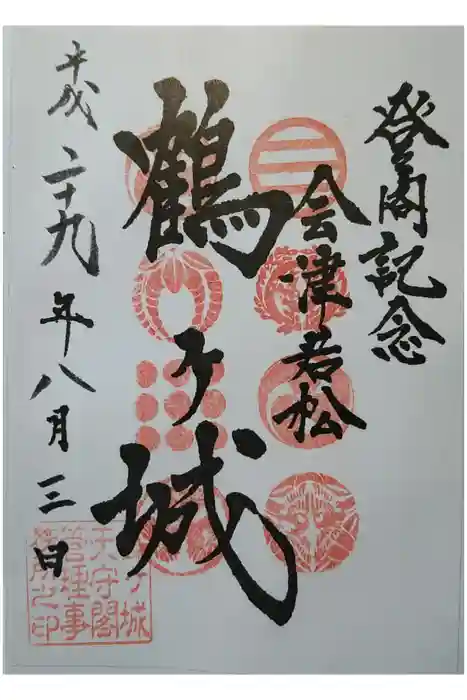 登閣記念
会津若松
鶴ヶ城
平成二十九年八月三日
鶴ヶ城
天守閣
管理事
務所之印